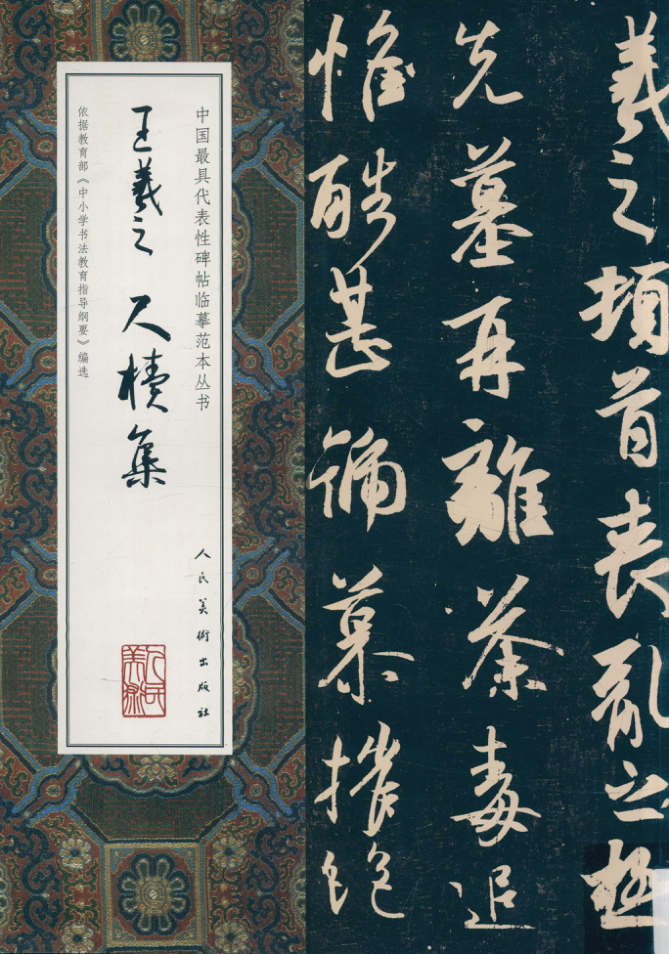 羲之頓首喪亂之極
先墓再離荼毒追
惟酷甚號慕摧絕
中国最具代表性碑帖临摹范本丛书
王羲之 尺牘集
依据教育部《中小学书法教育指导纲要》编选
人民美術出版社
人民美術